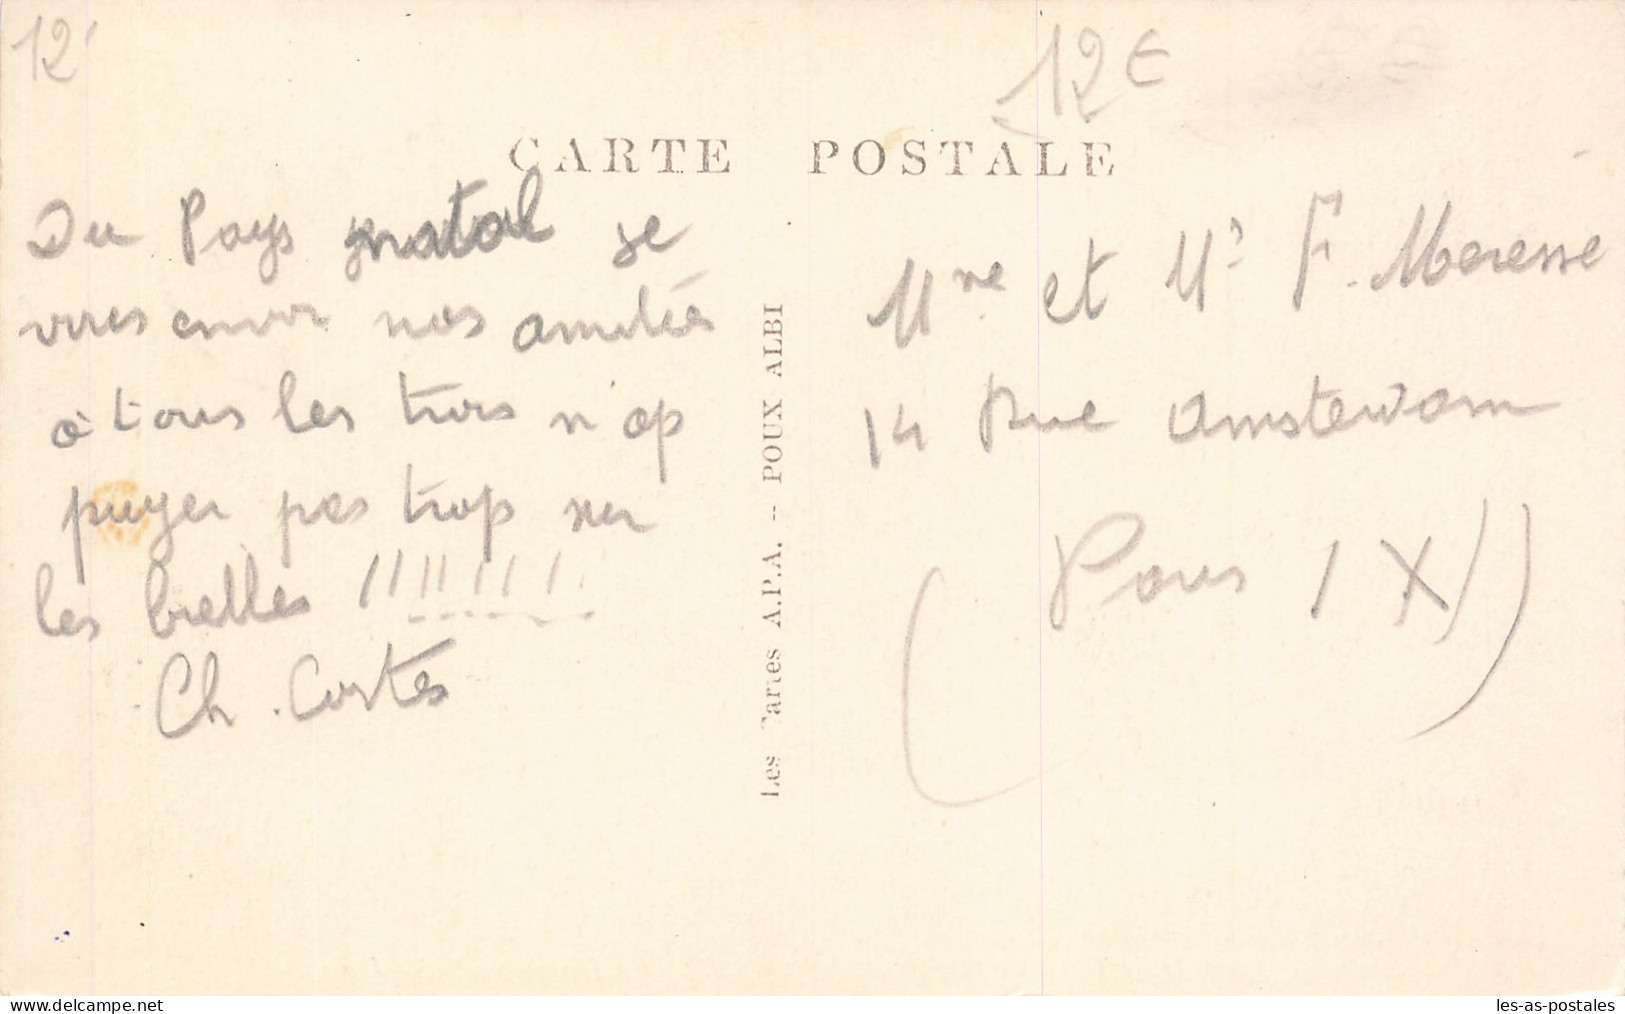 12
12 €
CARTE POSTALE
Du Pays natal je
vous envoie nos amitiés
à tous les trois n'ap
puyer pas trop sur
les brelles !!!!!!!
Ch. Cortes
Les Cartes A.P.A. -- POUX ALBI
Mme et Mr F. Maressé
14 Rue Amsterdam
(Paris IX)
delcampe.net
les-as-postales